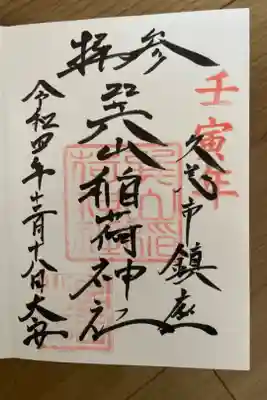 壬寅年
久慈市鎮座
参拝
巽山稲荷神社
令和四年十二月十八日大安